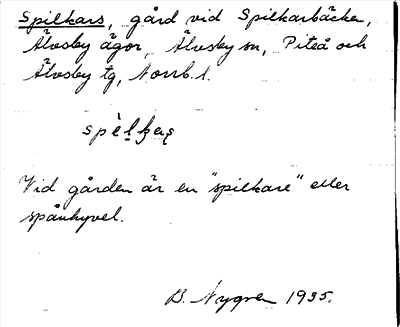 Spilkars, gård vid Spilkarbäcken,
Älvsby ägor, Älvsby sn, Piteå och
Älvsby tg, Norrb. l.
Vid gården är en "spilkare" eller
spånhyvel.
B. Nygren 1935.